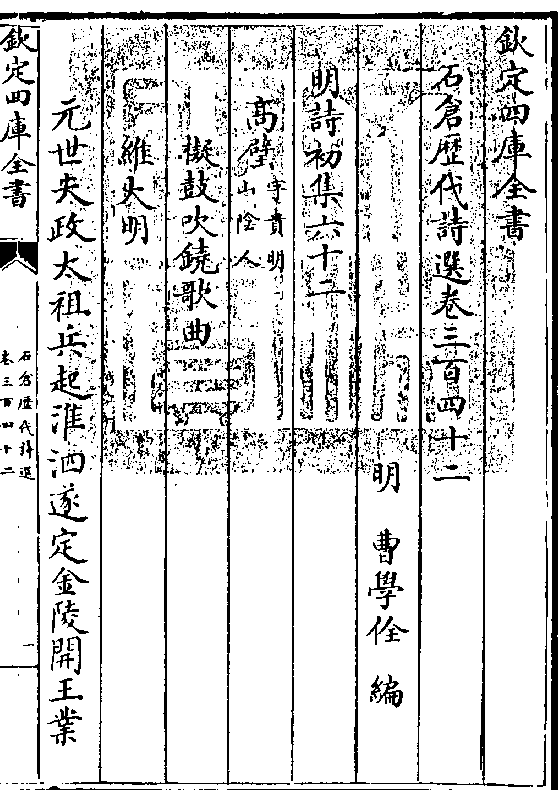 欽定四庫全書
石倉歴代詩選卷三百四十二
明 曹學佺 編
明詩初集六十二
高璧字貴明山陰人
擬鼓吹鐃歌曲
維大明
元世失政太祖兵起淮泗遂定金陵開王業
欽定四庫全書
石倉歴代詩選
卷三百四十二
一